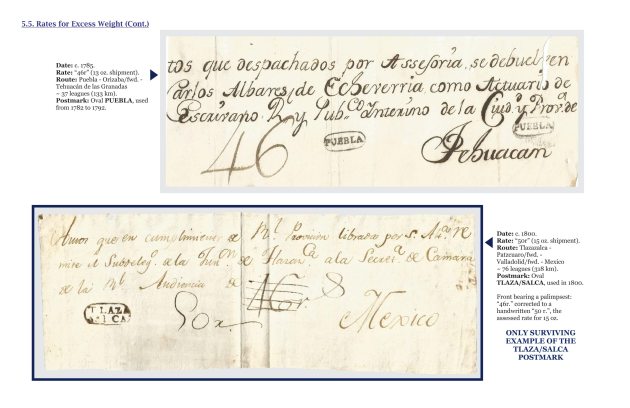 5.5. Rates for Excess Weight (Cont.)
Date: c. 1785.
Rate: "46r" (13 oz. shipment).
Route: Puebla - Orizaba/fwd. -
Tehuacán de las Granadas
~ 37 leagues (133 km).
Postmark: Oval PUEBLA, used
from 1782 to 1792.
tos que despachados por Assesoria, se debuelven
Carlos Albares, de Echeverria como Actuario de
Escrivano R. y Pub.co Interino de la Ciud. y Prov.a de
46 PUEBLA PUEBLA
Tehuacan
Date: c. 1800.
Rate: "50r" (15 oz. shipment).
Route: Tlazazalca -
Patzcuaro/fwd. -
Valladolid/fwd. - Mexico
~ 76 leagues (318 km).
Postmark: Oval
TLAZA/SALCA, used in 1800.
Front bearing a palimpsest:
"46r." corrected to a
handwritten "50 r.", the
assessed rate for 15 oz.
ONLY SURVIVING
EXAMPLE OF THE
TLAZA/SALCA
POSTMARK
que en cumplimiento de Provicion librada por S.
mite el Subdeleg. de la de a la Secret.a de Camara
de la Audiencia de 46r
TLAZA
SALCA
50r Mexico